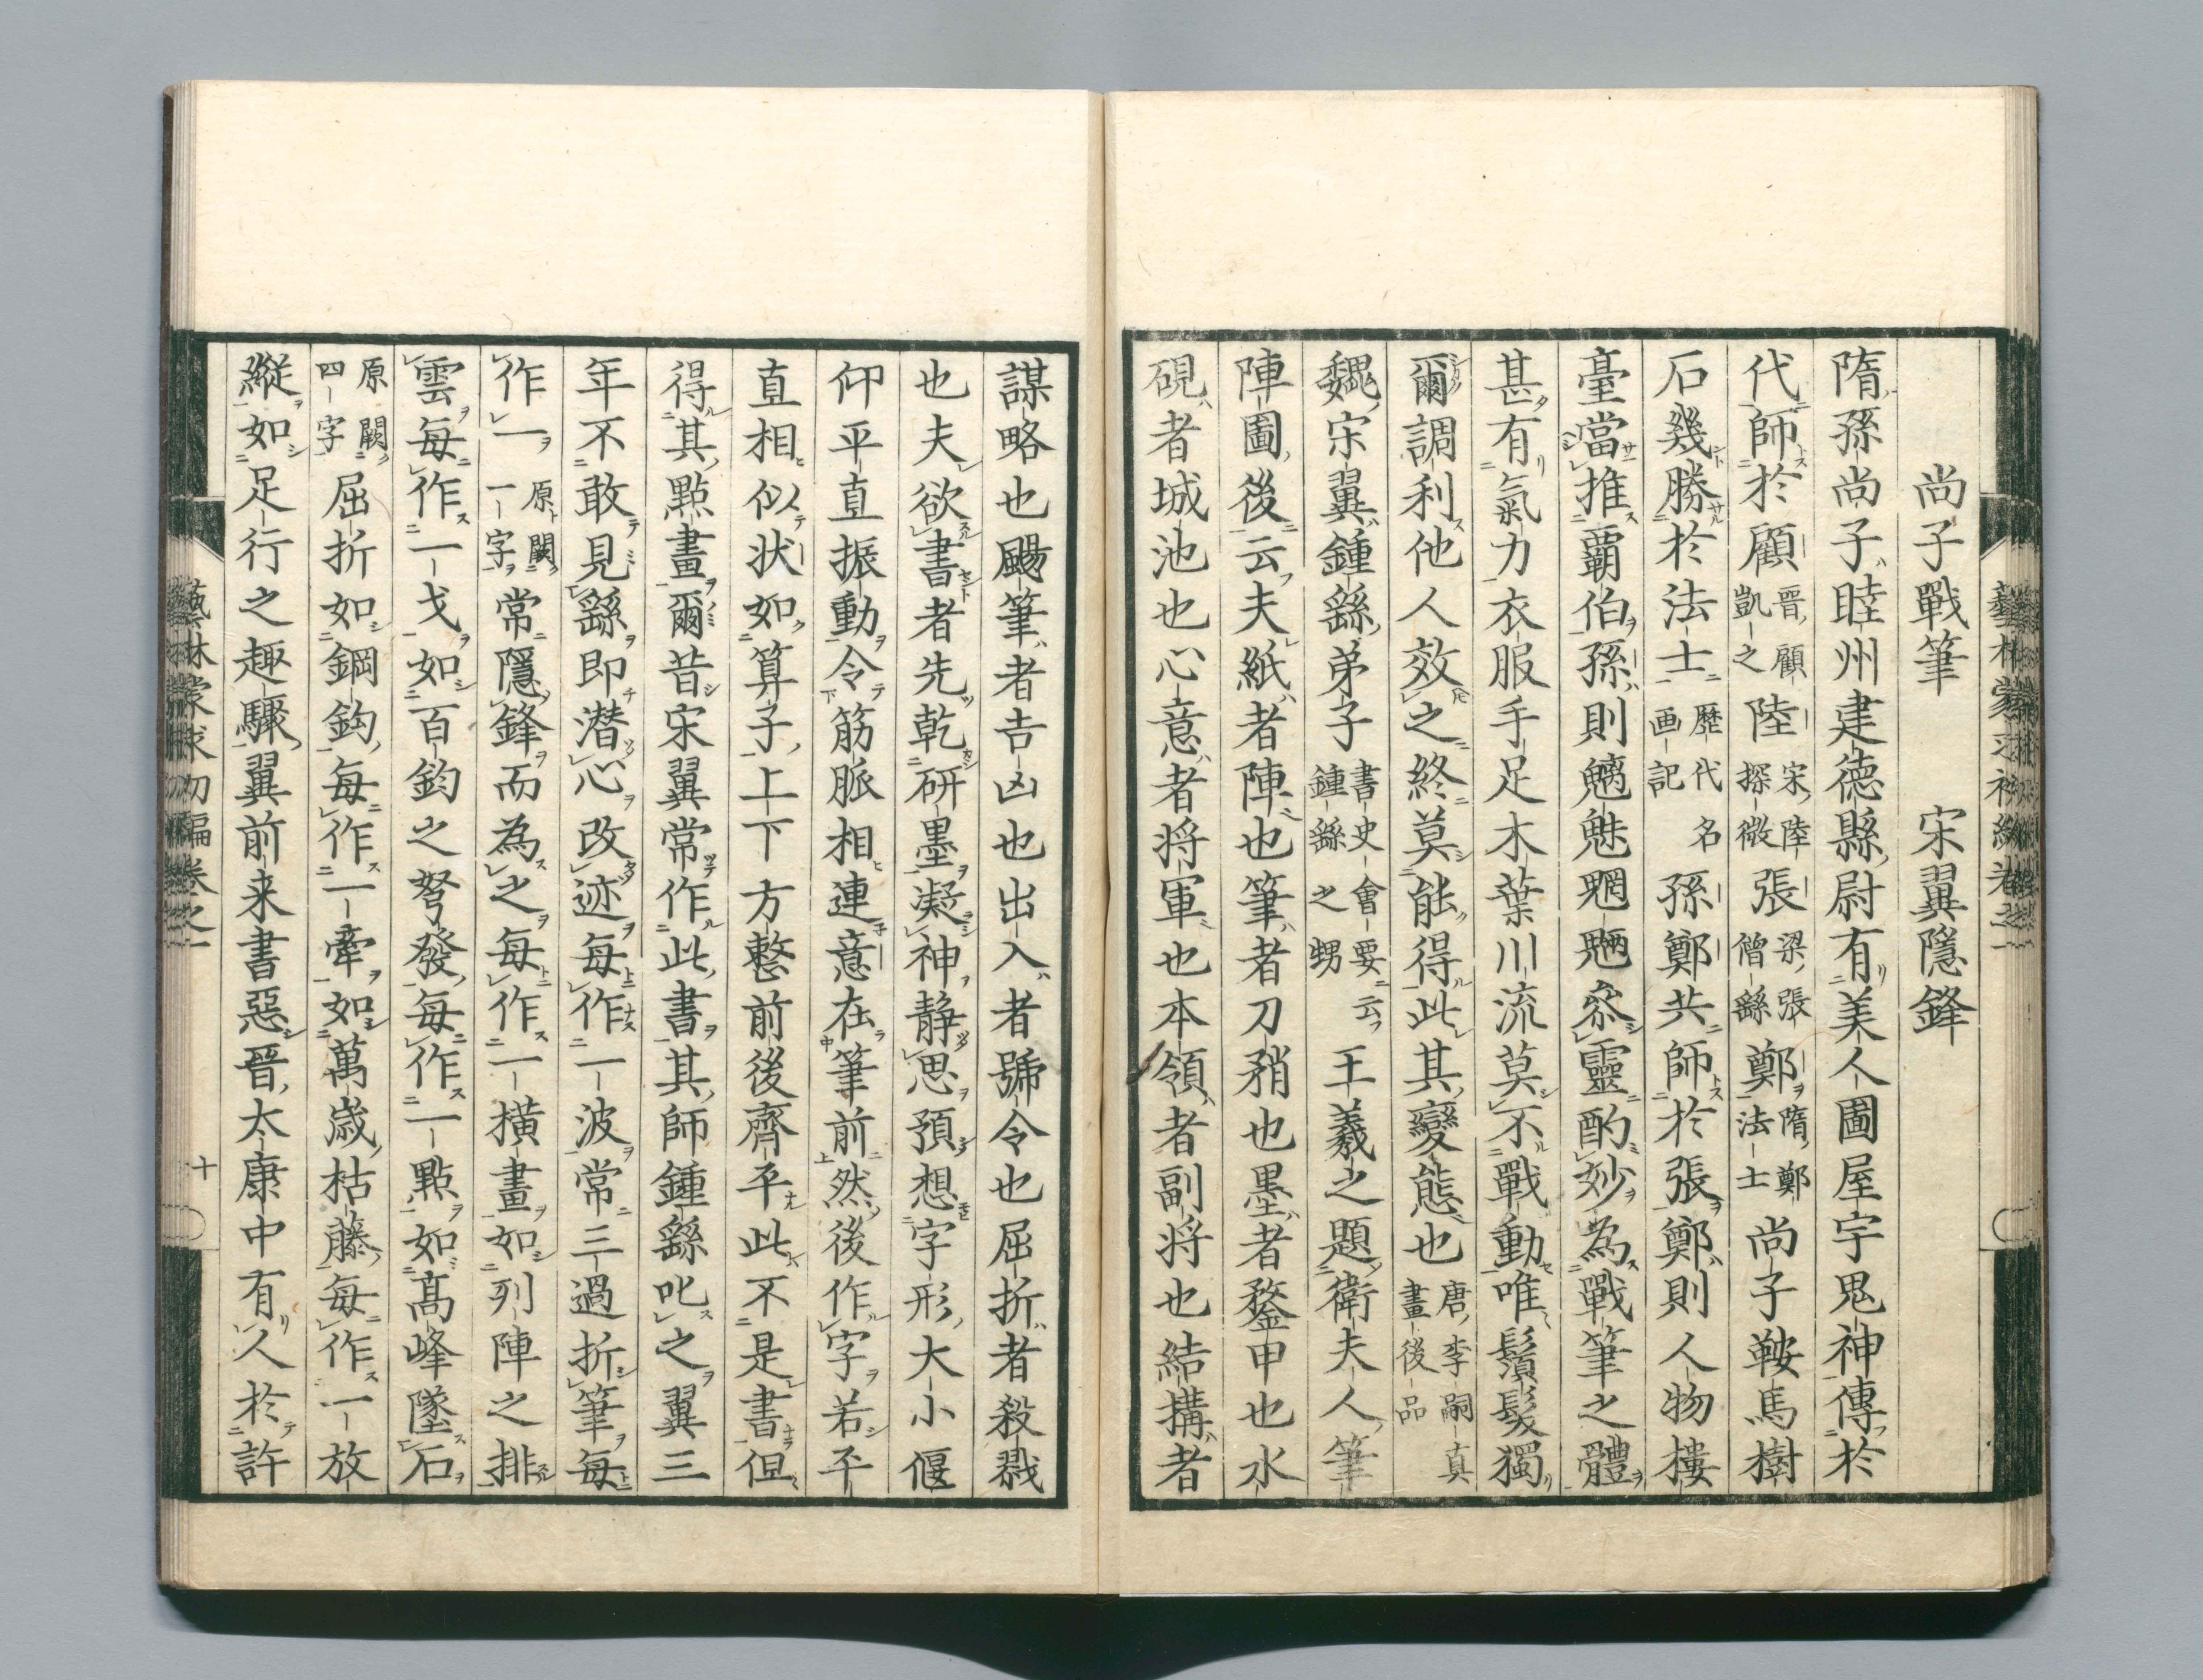 尚子戰筆　宋翼隱鋒
隋孫尚子睦州建德縣尉有美人圖屋宇鬼神傳於
代師於顧晋顧凱之陸宋陸探微張梁張僧繇鄭隋鄭法士尚子鞍馬樹
石幾勝於法士歷代名画記孫鄭共師於張鄭則人物樓
臺當推覇伯孫則魑魅魍魎叅靈酌妙為戰筆之體
甚有氣力衣服手足木葉川流莫不戰動唯鬚髮獨
爾調利他人效之終莫能得此其變態也唐李嗣真畫後品
魏宋翼鍾繇弟子書史會要云鍾繇之甥王羲之題衛夫人筆
陣圖後云夫紙者陣也筆者刀矟也墨者鍪甲也水
硯者城池也心意者将軍也本領者副将也結搆者
謀略也颺筆者吉凶也出入者號令也屈折者殺戮
也夫欲書者先乾研墨凝神静思預想字形大小偃
仰平直振動令筋脈相連意在筆前然後作字若平
直相似状如算子上下方整前後齊平此不是書但
得其點畫爾昔宋翼常作此書其師鍾繇叱之翼三
年不敢見繇即潜心改迹每作一波常三過折筆每
作一原闕一字常隱鋒而為之每作一橫畫如列陣之排
雲每作一戈如百鈞之弩發每作一點如高峰墜石
原闕四字屈折如鋼鈎每作一牽如萬歲枯藤每作一放
縱如足行之趣驟翼前来書惡晋太康中有人於許
藝林蒙求初編卷之一　十